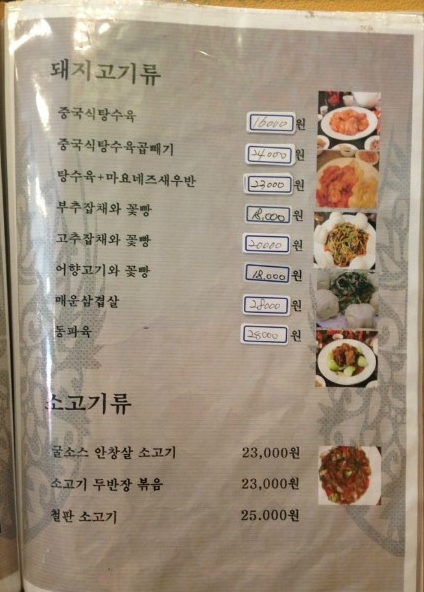 돼지고기류
중국식탕수육 16000 원
중국식탕수육곱빼기 24,000 원
탕수육+마요네즈새우반 23,000 원
부추잡채와 꽃빵 18,000 원
고추잡채와 꽃빵 20000 원
어향고기와 꽃빵 18,000 원
매운삼겹살 28000 원
동파육 28,000 원
소고기류
굴소스 안창살 소고기 23,000원
소고기 두반장 볶음 23,000원
철판 소고기 25.000원